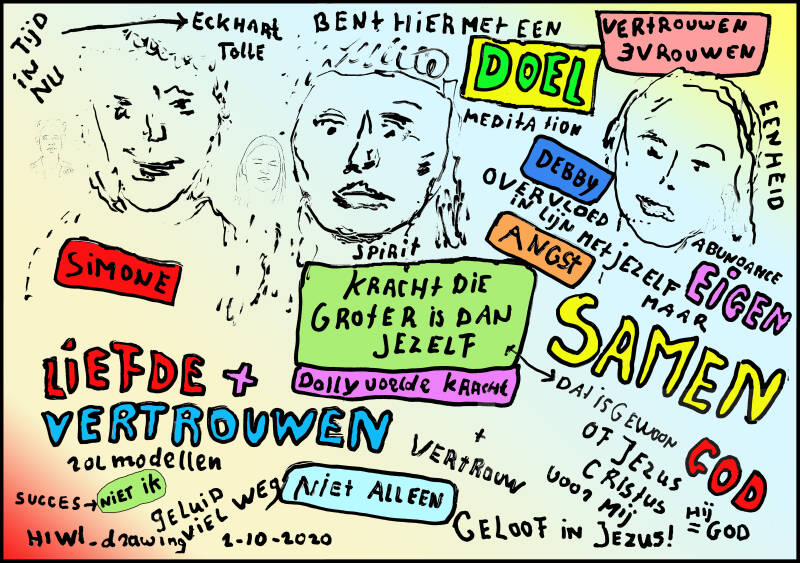 TIJD
IN
NU
ECKHART
TOLLE
BENT HIER MET EEN
DOEL
VERTROUWEN
3VROUWEN
MEDITATION
EENHEID
DEBBY
OVERVLOED
IN LIJN MET JEZELF
ANGST
ABUNDANCE
EIGEN
MAAR
SAMEN
SIMONE
SPIRIT
KRACHT DIE
GROTER IS DAN
JEZELF
Dolly voelde KRACHT
LIEFDE +
VERTROUWEN
rolmodellen
SUCCES → NIET IK
GELUID
VIEL WEG
NIET ALLEEN
+
VERTROUW
DAT IS GEWOON
GOD
OF JEZUS
CRISTUS
VOOR MIJ
HIJ
= GOD
GELOOF IN JEZUS!
HIWI-drawing 2-10-2020